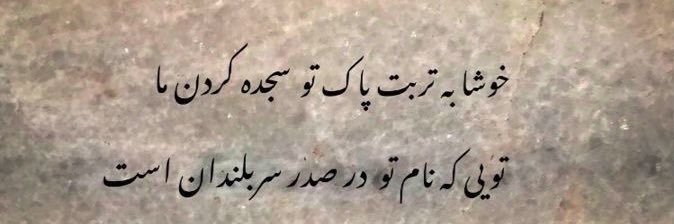 خوشا به تربت پاک تو سجده کردن ما
تویی که نام تو در صدر سربلندان است